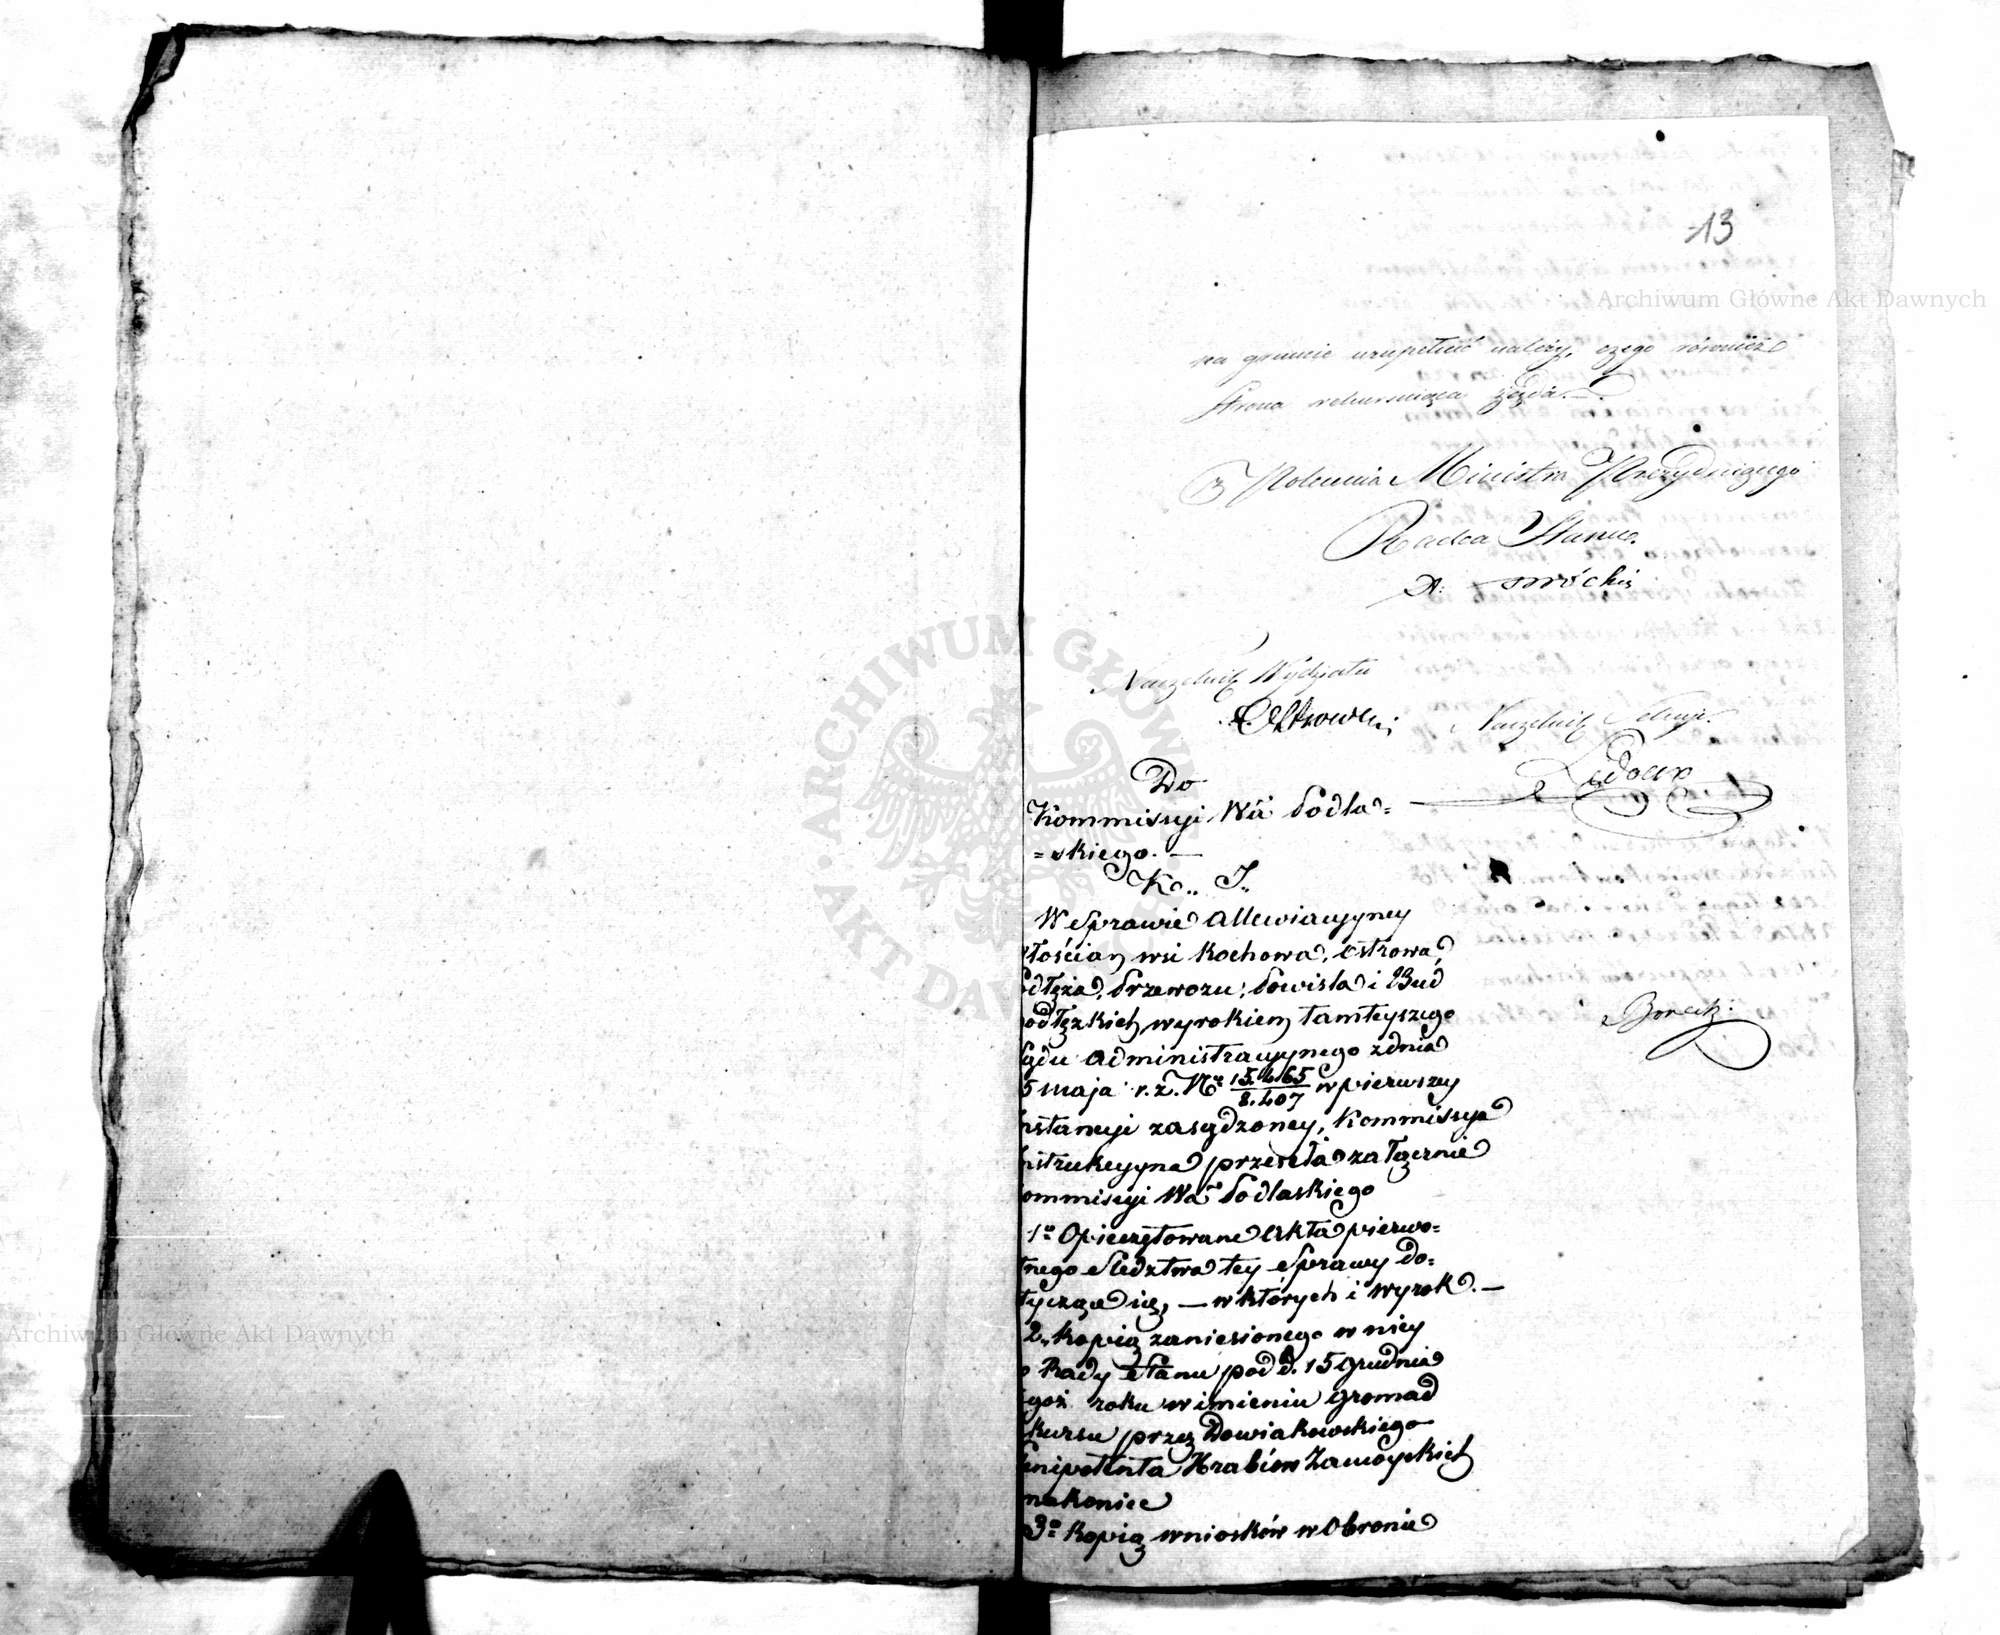 13
na gruncie uzupełnić należy, czego również
strona rekursująca żąda. —
Z Polecenia Ministra Prezydującego
Radca Stanu.
Naczelnik Wydziału
Naczelnik Sekcyi.
Ledoux
Do
Kommissyi Wa Podla=
=skiego. —
K.. J..
W Sprawie allewiacyyney
włościan wsi Kochowa, Ostrowa,
Podłęża, Przewozu, Powiśla i Bud
Podłęzkich, wyrokiem tamteyszego
Sądu administracyynego z dnia
5 maja r. z. Nr 15.465/8.407 w pierwszey
Instancyi zasądzoney, Kommissya
Instrukcyyna przeseła załącznie
Kommissyi Wa Podlaskiego
1o Opieczętowane Akta pierwo=
tnego Sledztwa tey Sprawy do=
tyczące się, — w których i wyrok. —
2.. Kopią zaniesionego w niey
do Rady Stanu pod d. 15 Grudnia
tegoż roku w imieniu gromad
Rekursu przez Dowiakowskiego
Plenipotenta Hrabiów Zamoyskich
nakoniec
3o Kopią wniosków w Obronie
Archiwum Główne Akt Dawnych
Archiwum Główne Akt Dawnych
ARCHIWUM GŁÓWNE AKT DAWNYCH